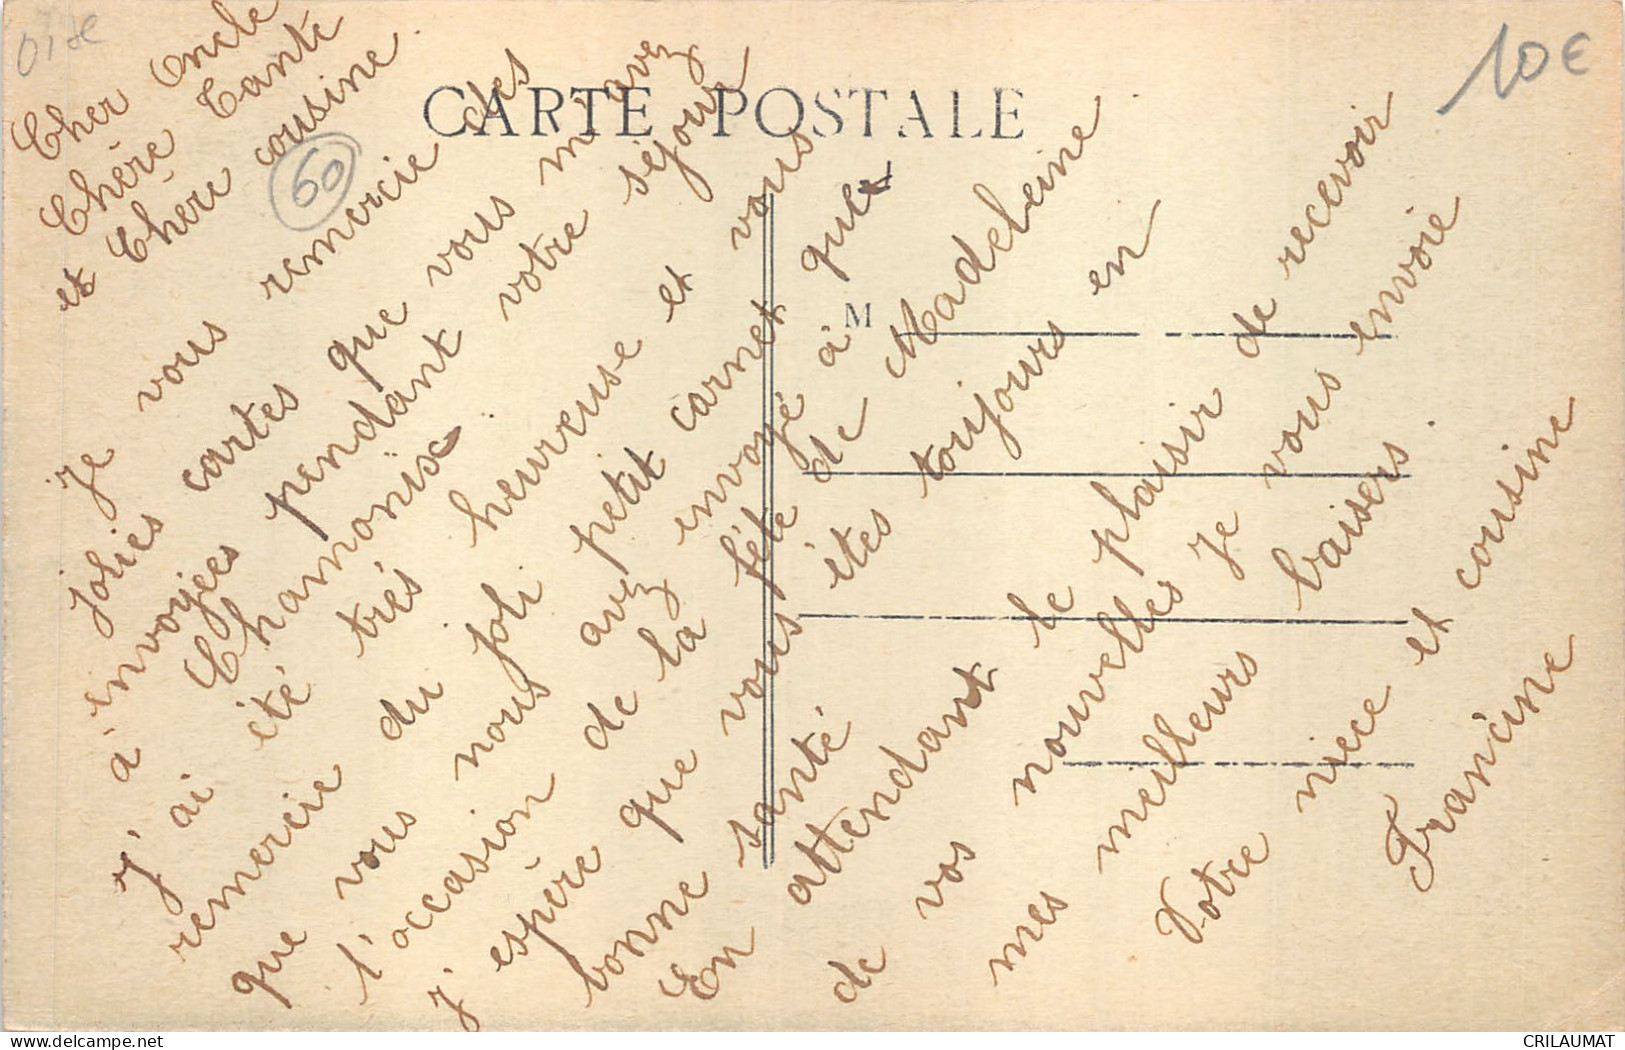 Oise
10€
60
CARTE POSTALE
M
Cher Oncle
Chère Tante
et Chère cousine
Je vous remercie des
jolies cartes que vous m'avez
envoyées pendant votre séjour
à Chamonix
J'ai été très heureuse et vous
remercie du joli petit carnet que
que vous nous avez envoyé à
l'occasion de la fête de Madeleine
J'espère que vous êtes toujours en
bonne santé
En attendant le plaisir de recevoir
de vos nouvelles je vous envoie
mes meilleurs baisers.
Votre niece et cousine
Francine
delcampe.net
CRILAUMAT